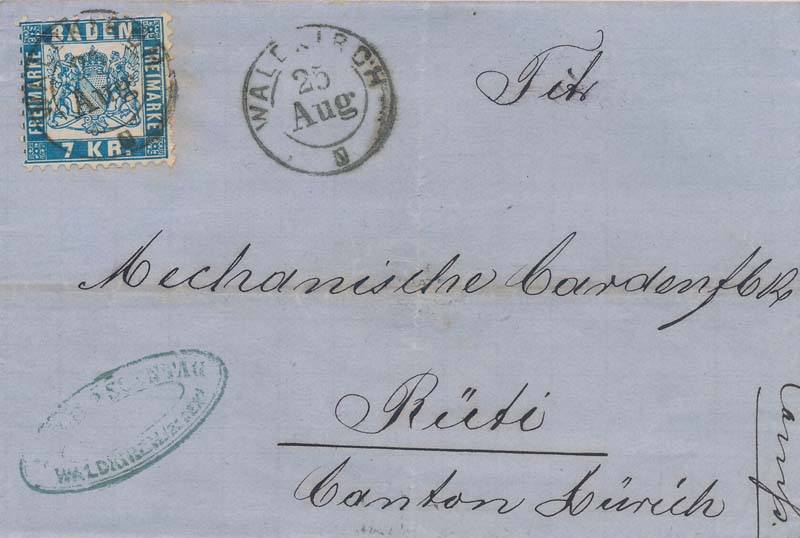 BADEN
FREIMARKE
FREIMARKE
7 KR.
WALDKIRCH
25
Aug
N
Titr
Mechanische Cardenfbk
Rüti
Canton Zürich